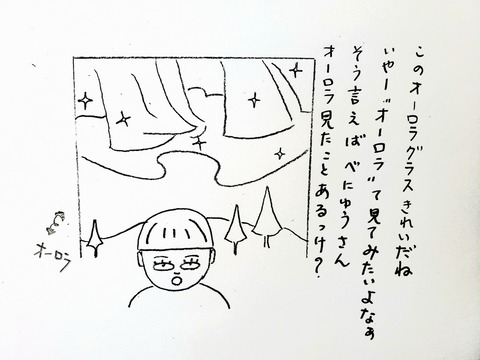 このオーロラグラスきれいだね
いやー!"オーロラ"て見てみたいよなぁ
そう言えばべにゅうさん
オーロラ見たことあるっけ?
オーロラ